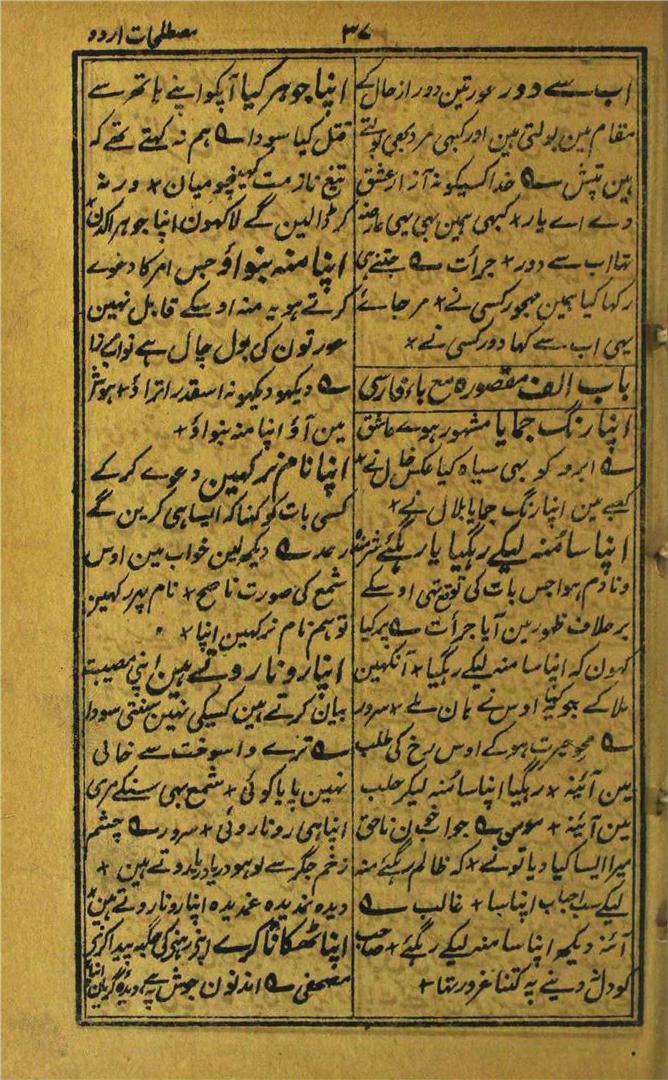 ۳۷
مصطلحات اردو
اب سے دور عورتین دور از حال کے
مقام مین بولتی ہین اور کبہی مرد بھی بولتے
ہین تپش ے خدا کسیکو نہ آزار عشق
دے اے یار × کبہی ہمین بہی یہی عارضہ
تہا اب سے دور × جرأت ے جیتے ہی
رکہا کیا ہمین مہجور کسی نے × مر جائے
یہی اب سے کہا دور کسی نے ×
باب الف مقصورہ مع باء فارسی
اپنا رنگ جمایا مشہور ہوے عاشق
ے ابرو کو بہی سیاہ کیا عکس خال نے ×
کعبے مین اپنا رنگ جمایا بلال نے ×
اپنا سا منہ لیکے رہگیا یا رہگئے شرمندہ
و نادم ہوا جس بات کی توقع تہی اوسکے
برخلاف ظہور مین آیا جرأت ے پر کیا
کہون کہ اپنا سا منہ لیکے رہگیا × آنکہین
ملا کے جو کہا اوس نے ہان ملے × سرور
ے محو حیرت ہوکے اوس رخ کی طلب
مین آئینہ × رہگیا اپنا سا منہ لیکر حلب
مین آئینہ × مومن ے جواب خون ناحق
میرا ایسا کیا دیا تونے × کہ ظالم رہگئے منہ
لیکے سب احباب اپنا سا × غالب ے
آئنہ دیکہ اپنا سا منہ لیکے رہگئے × صاحب
کو دل نہ دینے پہ کتنا غرور تہا ×
اپنا جوہر کیا آپکو اپنے ہاتھ سے
قتل کیا سودا ے ہم نہ کہتے تھے کہ
تیغ ناز مت کہینچو میان × ورنہ
کر ڈالین گے لاکہون اپنا جوہر اکدن ×
اپنا منہ بنواؤ جس امر کا دعوے
کرتے ہو یہ منہ اوسکے قابل نہین
عورتون کی بول چال ہے نواب مرزا
ے دیکہو دیکہو نہ اسقدر اتراؤ × ہوش
مین آؤ اپنا منہ بنواؤ ×
اپنا نام نر کہین دعوے کرکے
کسی بات کو کہنا کہ ایسا ہی کرین گے
رعد ے دیکہ لین خواب مین اوس
شمع کی صورت ناصح × نام پہر رکہین
تو ہم نام نر کہین اپنا ×
اپنا رونا روتے ہین اپنی مصیبت
بیان کرتے ہین کسیکی نہین سنتی سودا
ے ترے واسوخت سے خالی
نہین پایا کوئی × شمع بہی سنکے مری
اپنا ہی رونا روئی × سرور ے چشم
زخم جگر سے لوہو دریا دریا روتے ہین ×
دیدہ ندیدہ غمدیدہ اپنا رونا روتے ہین ×
اپنا ٹھکانا کرے اپنے رہنے کی جگہ پیدا کرے
مصحفی ے اندنون جوش پہ ہے دیدۂ گریان اپنا